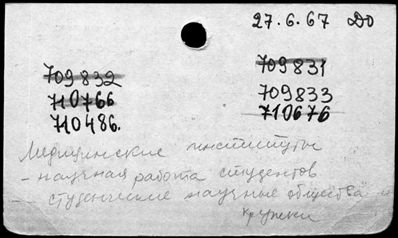 27.6.67 До
709832 709831
710766 709833
710486. 710676
Медицинские институты
- научная работа студентов
студенческие научные общества и
кружки